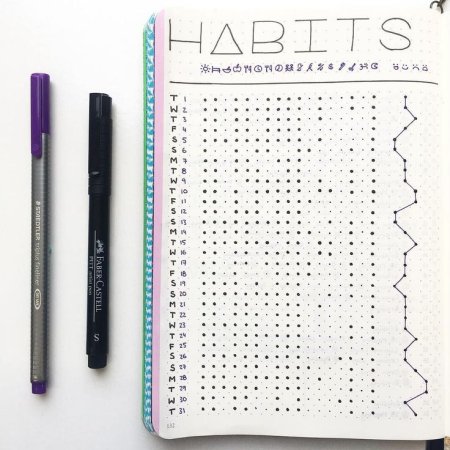 HABITS
T 1
W 2
T 3
F 4
S 5
S 6
M 7
T 8
W 9
T 10
F 11
S 12
S 13
M 14
T 15
W 16
T 17
F 18
S 19
S 20
M 21
T 22
W 23
T 24
F 25
S 26
S 27
M 28
T 29
W 30
T 31
STAEDTLER triplus fineliner
FABER-CASTELL
PITT artist pen
S